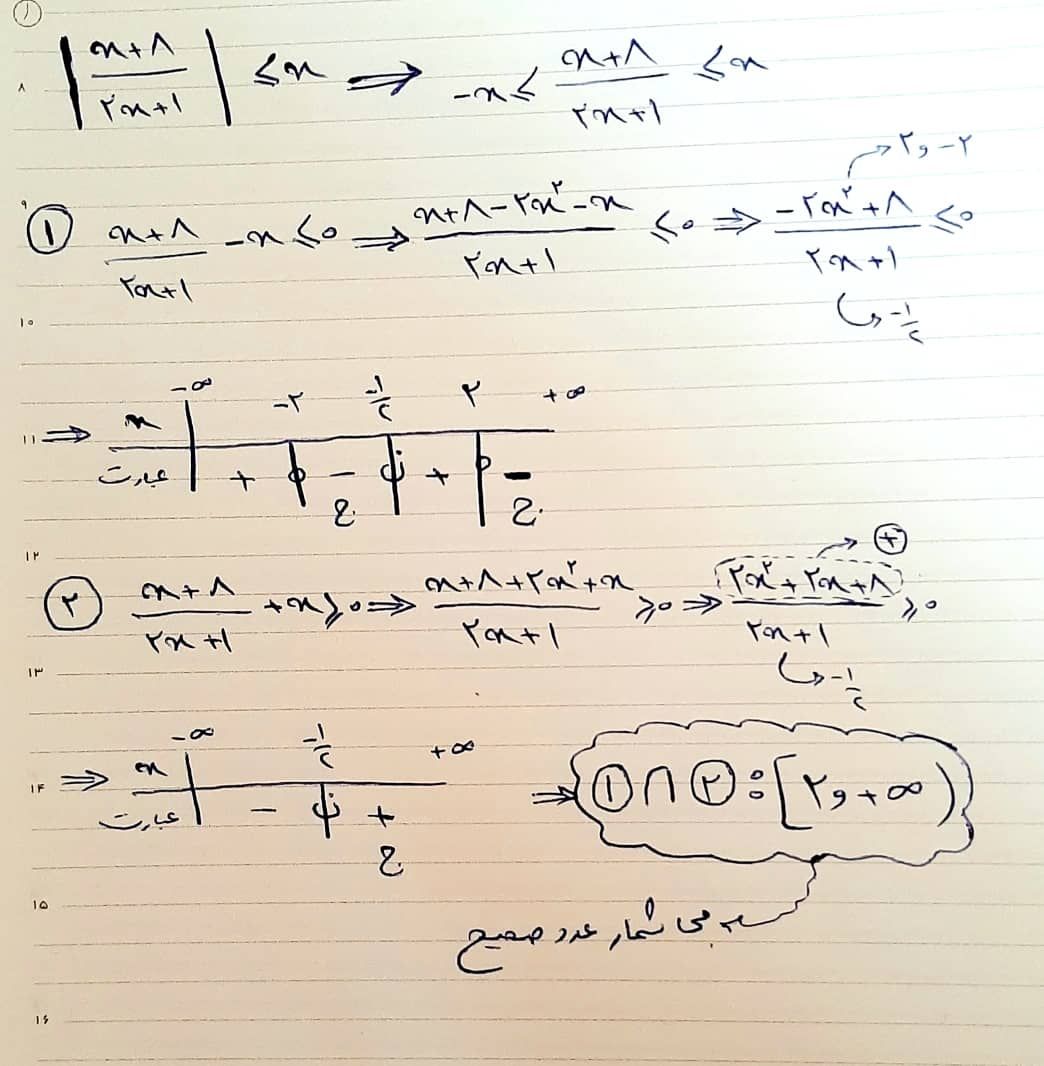 ۱
۸
|(x+۸)/(۲x+۱)| ≤ x ⇒ -x ≤ (x+۸)/(۲x+۱) ≤ x
۲ و -۲
۹
① (x+۸)/(۲x+۱) - x ≤ ۰ ⇒ (x+۸-۲x²-x)/(۲x+۱) ≤ ۰ ⇒ (-۲x²+۸)/(۲x+۱) ≤ ۰
-۱/۲
۱۰
x -∞ -۲ -۱/۲ ۲ +∞
۱۱ ⇒
عبارت + ۰ - ن + ۰ -
ج ج
۱۲
+
② (x+۸)/(۲x+۱) + x ≥ ۰ ⇒ (x+۸+۲x²+x)/(۲x+۱) ≥ ۰ ⇒ (۲x²+۲x+۸)/(۲x+۱) ≥ ۰
-۱/۲
۱۳
x -∞ -۱/۲ +∞
۱۴ ⇒
عبارت - ن +
ج
⇒ ① ∩ ② : [۲ و +∞)
۱۵
بی شمار عدد صحیح
۱۶